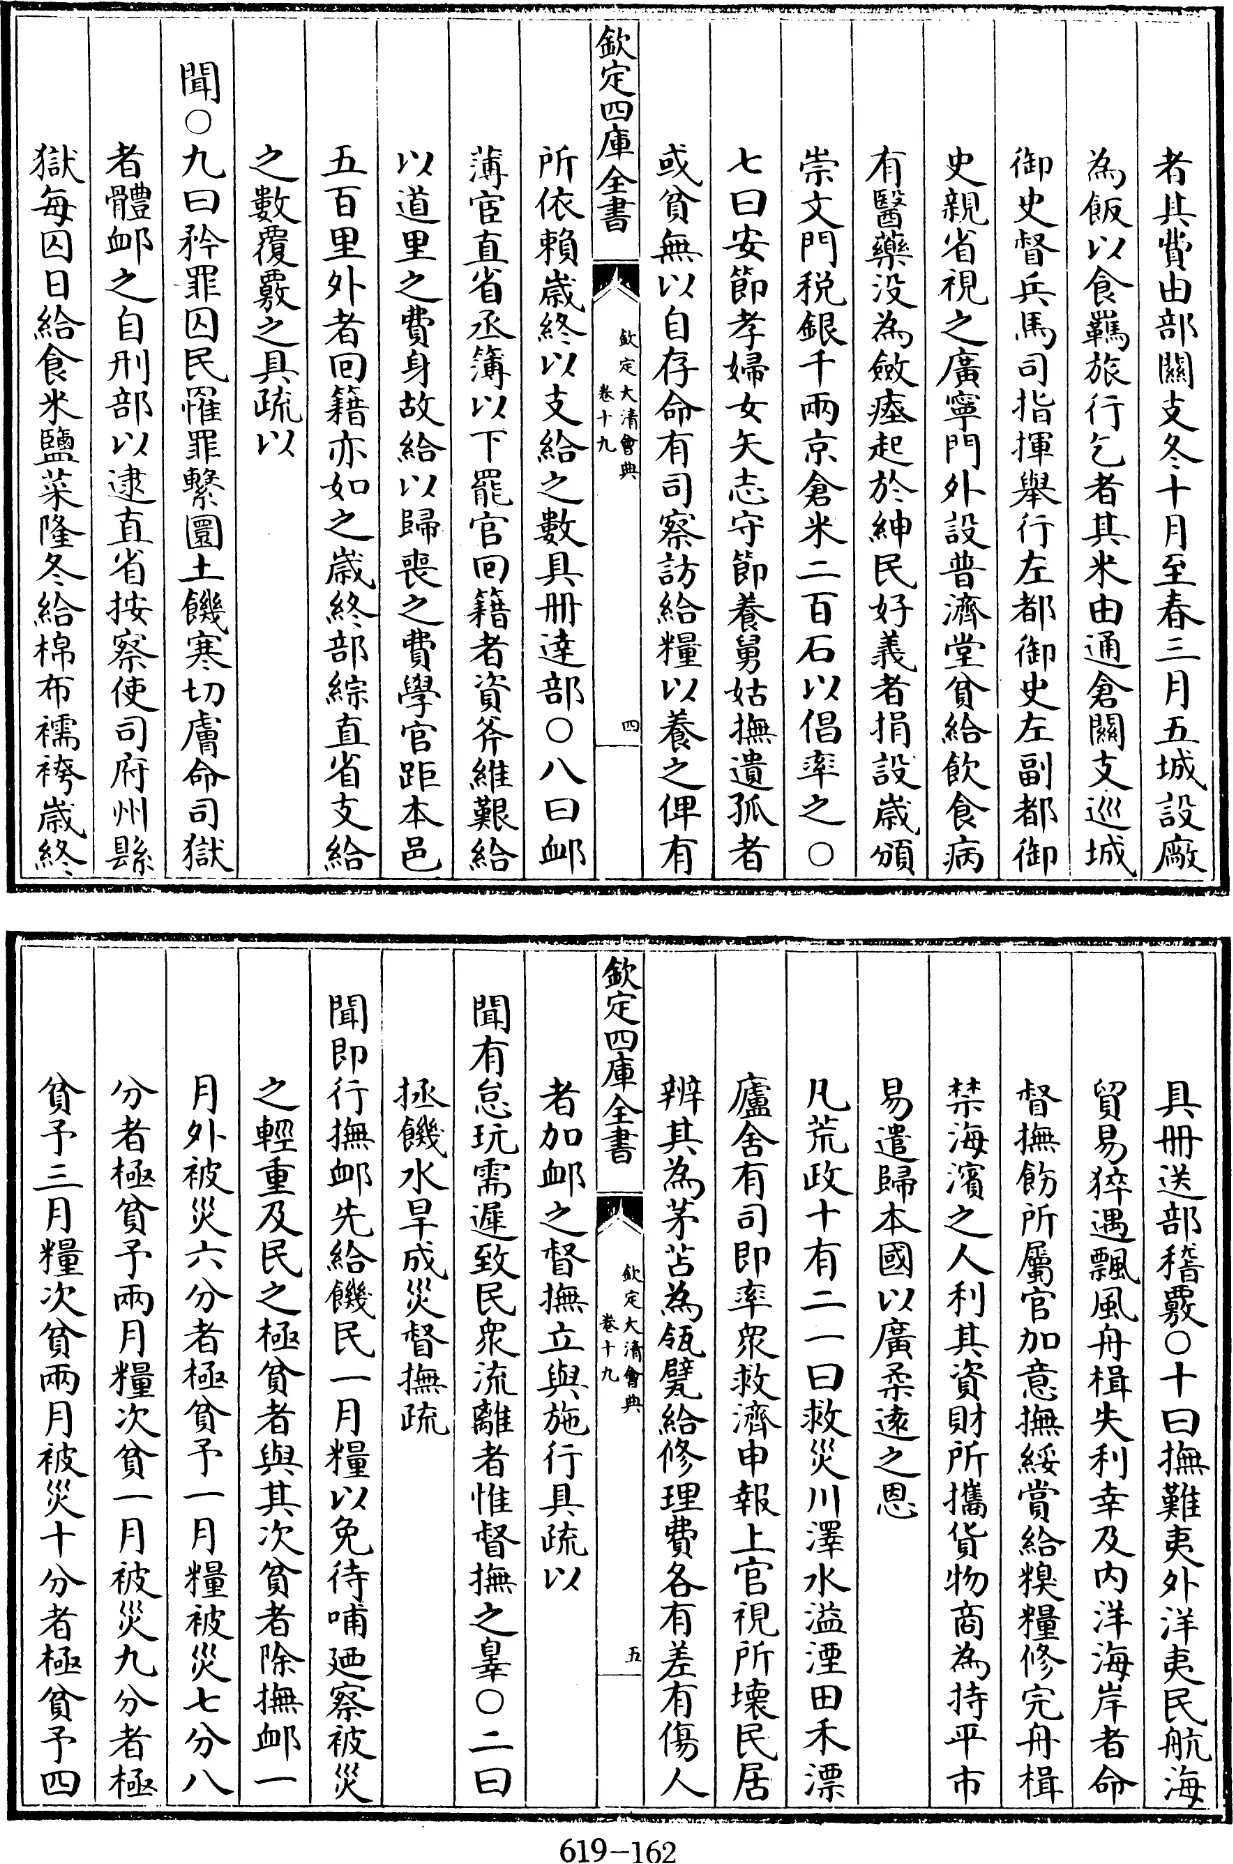 者其費由部關支冬十月至春三月五城設廠
為飯以食羈旅行乞者其米由通倉關支巡城
御史督兵馬司指揮舉行左都御史左副都御
史親省視之廣寧門外設普濟堂貧給飲食病
有醫藥没為斂瘞起於紳民好義者捐設歲頒
崇文門税銀千兩京倉米二百石以倡率之○
七曰安節孝婦女矢志守節養舅姑撫遺孤者
或貧無以自存命有司察訪給糧以養之俾有
欽定四庫全書
欽定大清會典
卷十九
四
所依賴歲終以支給之數具冊達部○八曰䘏
薄宦直省丞簿以下罷官回籍者資斧維艱給
以道里之費身故給以歸喪之費學官距本邑
五百里外者回籍亦如之歲終部綜直省支給
之數覆覈之具疏以
聞○九曰矜罪囚民罹罪繫圜土饑寒切膚命司獄
者體䘏之自刑部以逮直省按察使司府州縣
獄每囚日給食米鹽菜隆冬給棉布襦袴歲終
具冊送部稽覈○十曰撫難夷外洋夷民航海
貿易猝遇飄風舟楫失利幸及内洋海岸者命
督撫飭所屬官加意撫綏賞給糗糧修完舟楫
禁海濱之人利其資財所攜貨物商為持平市
易遣歸本國以廣柔逺之恩
凡荒政十有二一曰救災川澤水溢湮田禾漂
廬舍有司即率衆救濟申報上官視所壊民居
辨其為茅苫為瓴甓給修理費各有差有傷人
欽定四庫全書
欽定大清會典
卷十九
五
者加䘏之督撫立與施行具疏以
聞有怠玩需遲致民衆流離者惟督撫之辠○二曰
拯饑水旱成災督撫疏
聞即行撫䘏先給饑民一月糧以免待哺廼察被災
之輕重及民之極貧者與其次貧者除撫䘏一
月外被災六分者極貧予一月糧被災七分八
分者極貧予兩月糧次貧一月被災九分者極
貧予三月糧次貧兩月被災十分者極貧予四
619-162